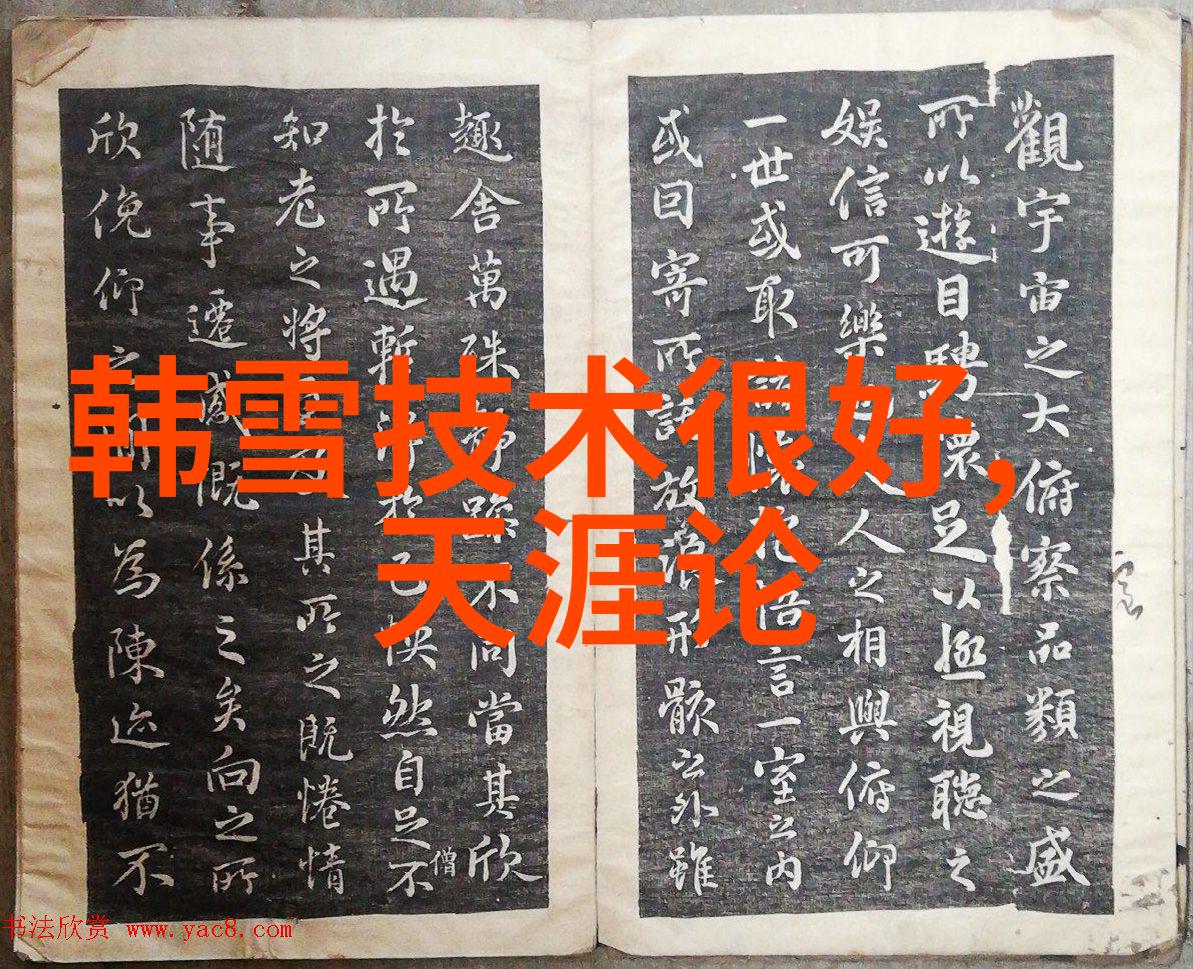 觀宇宙之大俯察品類之盛
所以遊目騁懷足以極視聽之
娛信可樂也夫人之相與俯仰
一世或取諸懷抱悟言一室之內
或因寄所託放浪形骸之外雖
趣舍萬殊靜躁不同當其欣
於所遇暫得於己怏然自足不
僧
知老之將至及其所之既惓情
隨事遷感慨係之矣向之所
欣俛仰之間以為陳迹猶不
韩雪技术很好,
天涯论
书法欣赏 www.yac8.com